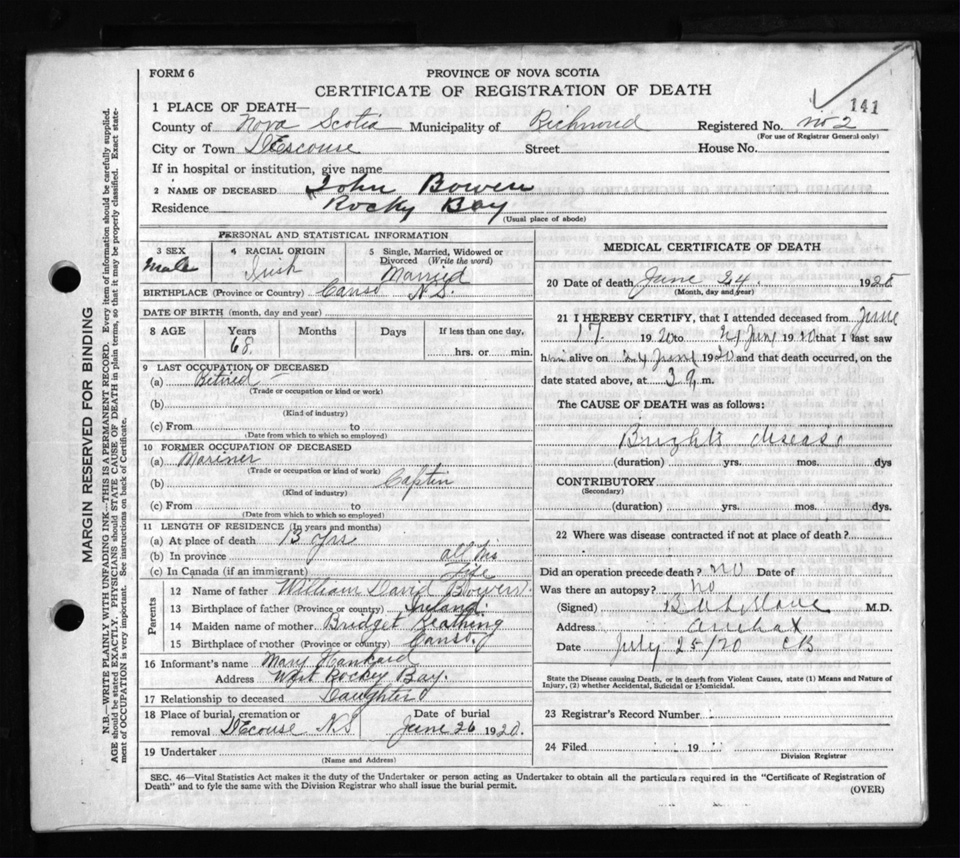 FORM 6
PROVINCE OF NOVA SCOTIA
CERTIFICATE OF REGISTRATION OF DEATH
141
1 PLACE OF DEATH—
County of Nova Scotia Municipality of Richmond Registered No. no 2
(For use of Registrar General only)
City or Town DEscouse Street House No.
If in hospital or institution, give name
2 NAME OF DECEASED John Bowen
Residence Rocky Bay
(Usual place of abode)
PERSONAL AND STATISTICAL INFORMATION
3 SEX male
4 RACIAL ORIGIN Irish
5 Single, Married, Widowed or Divorced (Write the word) Married
BIRTHPLACE (Province or Country) Canso N.S.
DATE OF BIRTH (month, day and year)
8 AGE Years 68 Months Days If less than one day, hrs. or min.
9 LAST OCCUPATION OF DECEASED
(a) Retired
(Trade or occupation or kind or work)
(b)
(Kind of industry)
(c) From to
(Date from which to which so employed)
10 FORMER OCCUPATION OF DECEASED
(a) Mariner
(Trade or occupation or kind of work)
(b) Captin
(Kind of industry)
(c) From to
(Date from which to which so employed)
11 LENGTH OF RESIDENCE (In years and months)
(a) At place of death 13 yrs
(b) In province all his
(c) In Canada (if an immigrant) Life
Parents
12 Name of father William David Bowen
13 Birthplace of father (Province or country) Ireland
14 Maiden name of mother Bridget
15 Birthplace of mother (Province or country) Canso
16 Informant's name Mary Hankard
Address West Rocky Bay
17 Relationship to deceased Daughter
18 Place of burial, cremation or removal DEcouse N.S
Date of burial June 26 1920.
19 Undertaker
(Name and Address)
MEDICAL CERTIFICATE OF DEATH
20 Date of death June 24. 192
(Month, day and year)
21 I HEREBY CERTIFY, that I attended deceased from June
17 1920 to 24 June 1920 that I last saw
him alive on 24 June 1920 and that death occurred, on the
date stated above, at 3 m.
The CAUSE OF DEATH was as follows:
Brights disease
(duration) yrs. mos. dys
CONTRIBUTORY
(Secondary)
(duration) yrs. mos. dys.
22 Where was disease contracted if not at place of death?
Did an operation precede death? no Date of
Was there an autopsy? no
(Signed) M.D.
Address Arichat
Date July 25/20 CB
State the Disease Causing Death, or in death from Violent Causes, state (1) Means and Nature of Injury, (2) whether Accidental, Suicidal or Homicidal.
23 Registrar's Record Number
24 Filed 19
Division Registrar
SEC. 46—Vital Statistics Act makes it the duty of the Undertaker or person acting as Undertaker to obtain all the particulars required in the "Certificate of Registration of
Death" and to fyle the same with the Division Registrar who shall issue the burial permit.
(OVER)
MARGIN RESERVED FOR BINDING
N.B.—WRITE PLAINLY WITH UNFADING INK—THIS IS A PERMANENT RECORD. Every item of information should be carefully supplied.
AGE should be stated EXACTLY. PHYSICIANS should STATE CAUSE OF DEATH in plain terms, so that it may be properly classified. Exact statement
of OCCUPATION is very important. See instructions on back of Certificate.